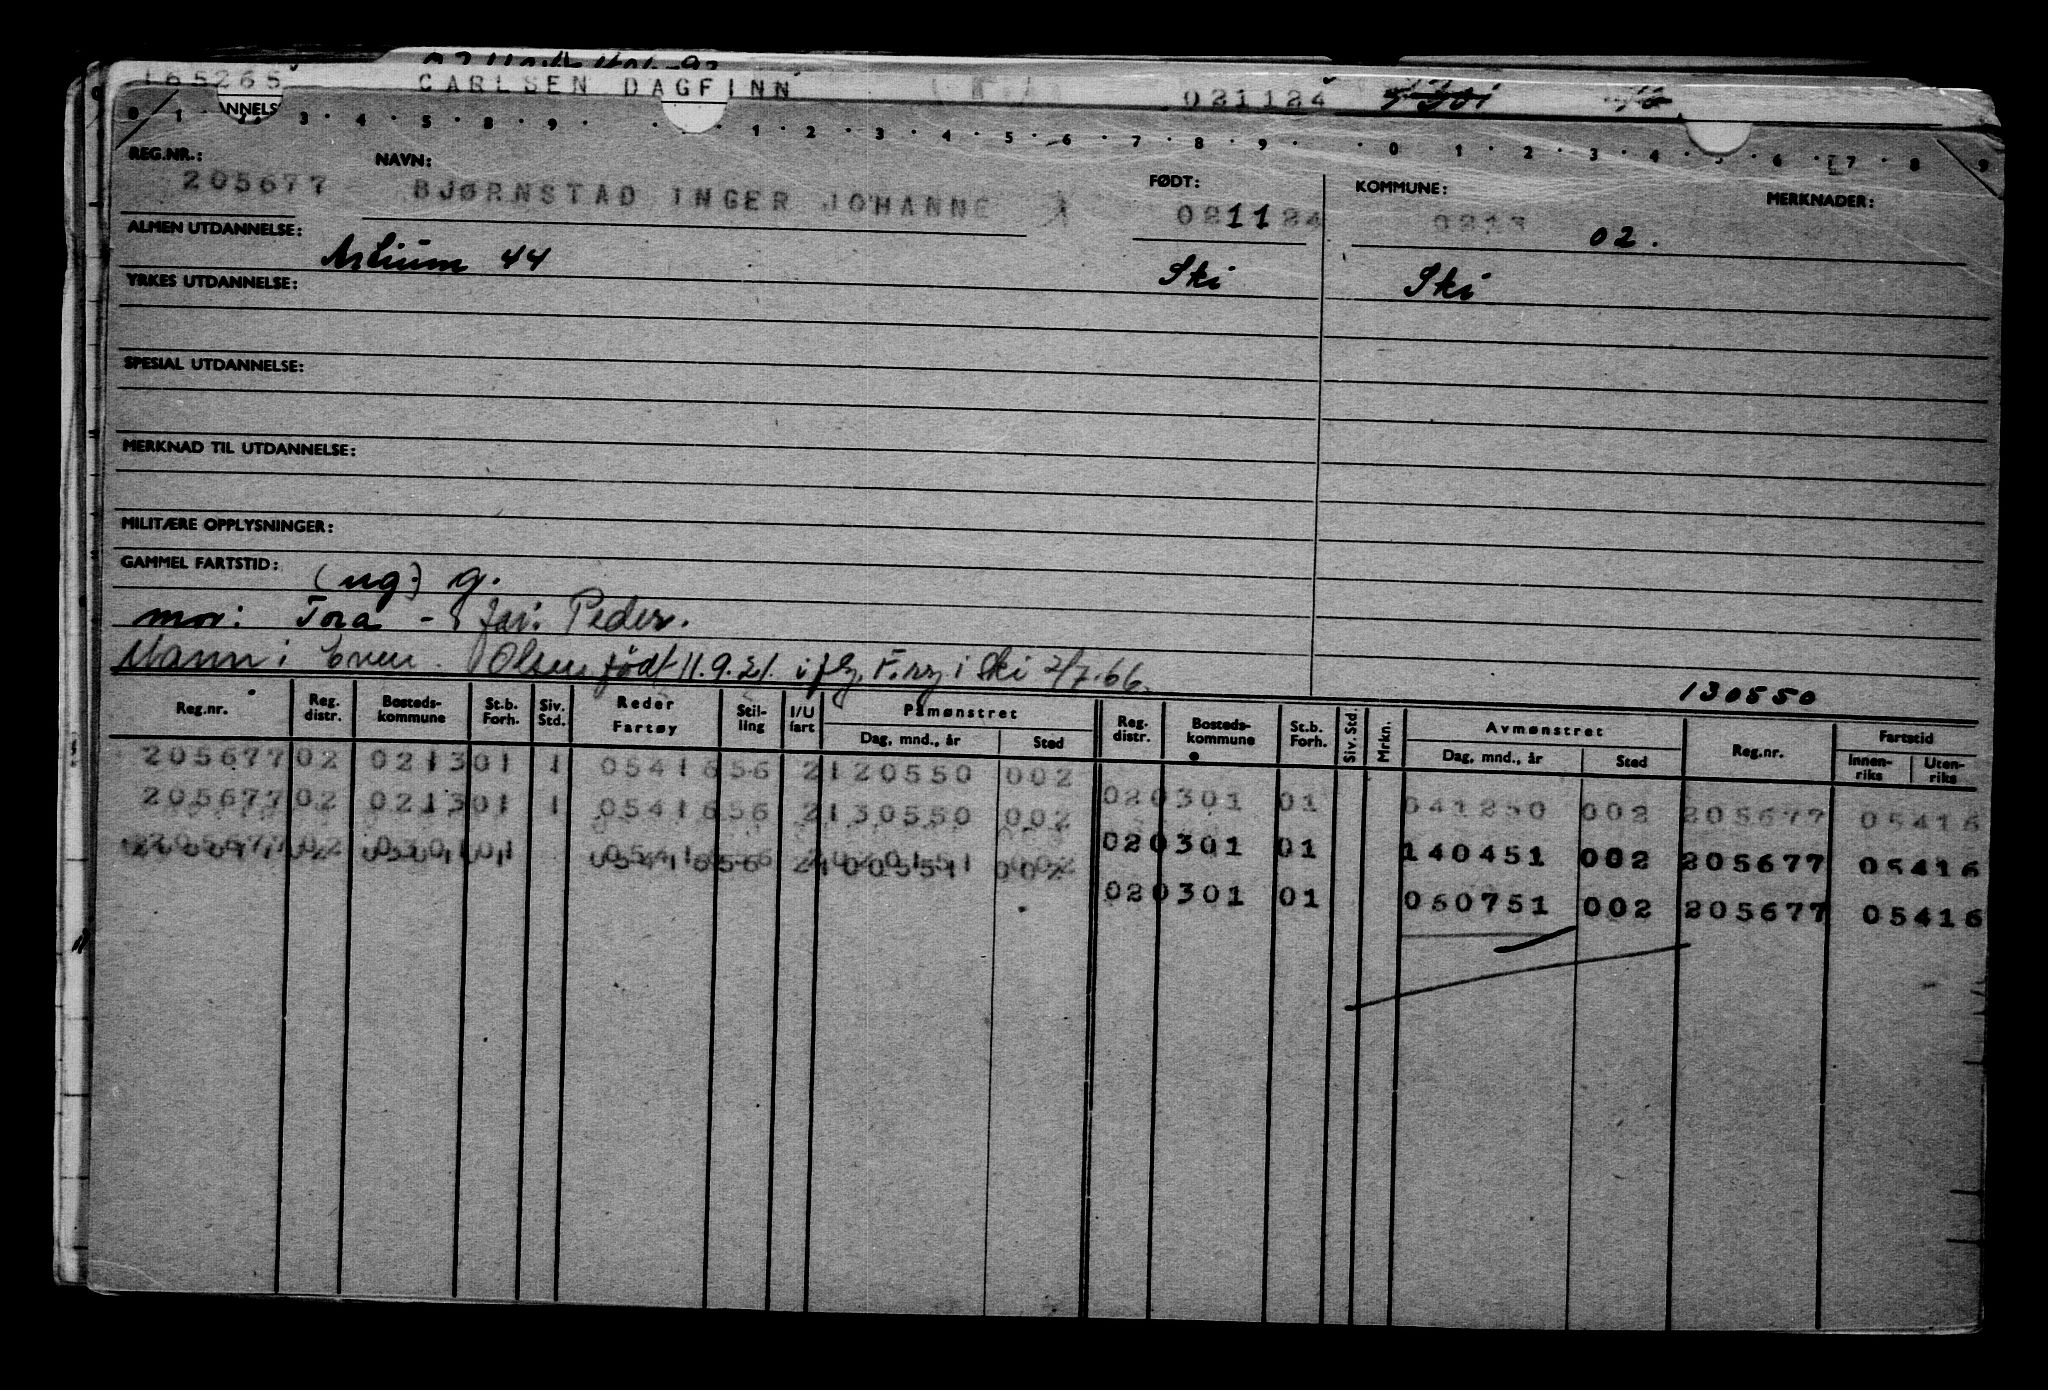 165265 CARLSEN DAGFINN 021124
ANNELSE
0 1 3 4 5 8 9 1 2 3 4 5 6 7 8 9 0 1 2 3 4 5 6 7 8 9
REG.NR.: NAVN: FØDT: KOMMUNE: MERKNADER:
205677 BJØRNSTAD INGER JOHANNE 021124 0213 02.
ALMEN UTDANNELSE: Artium 44 Ski Ski
YRKES UTDANNELSE:
SPESIAL UTDANNELSE:
MERKNAD TIL UTDANNELSE:
MILITÆRE OPPLYSNINGER:
GAMMEL FARTSTID: (ug.) g.
mor: Tora - far: Peder.
Mann: Even Olsen født 11.9.21. i flg. F.rg i Ski 2/7.66.
130550
Reg.nr. Reg. distr. Bosteds-kommune St.b. Forh. Siv. Std. Reder Fartøy Stil-ling I/U fart Påmønstret Dag, mnd., år Sted Reg. distr. Bosteds-kommune St.b. Forh. Siv. Std. Mrkn. Avmønstret Dag, mnd., år Sted Reg.nr. Fartstid Innen-riks Uten-riks
205677 02 0213 01 1 05416 56 2 120550 002 02 0301 01 041250 002 205677 05416
205677 02 0213 01 1 05416 56 2 130550 002 02 0301 01 140451 002 205677 05416
205677 02 0301 01 05416 56 2 002 02 0301 01 050751 002 205677 05416